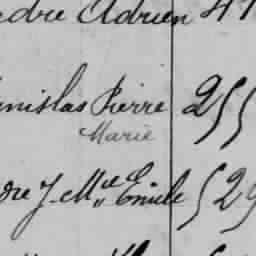 Adrien 41
nislas Pierre 255
Marie
dre J. Mie Emile 529